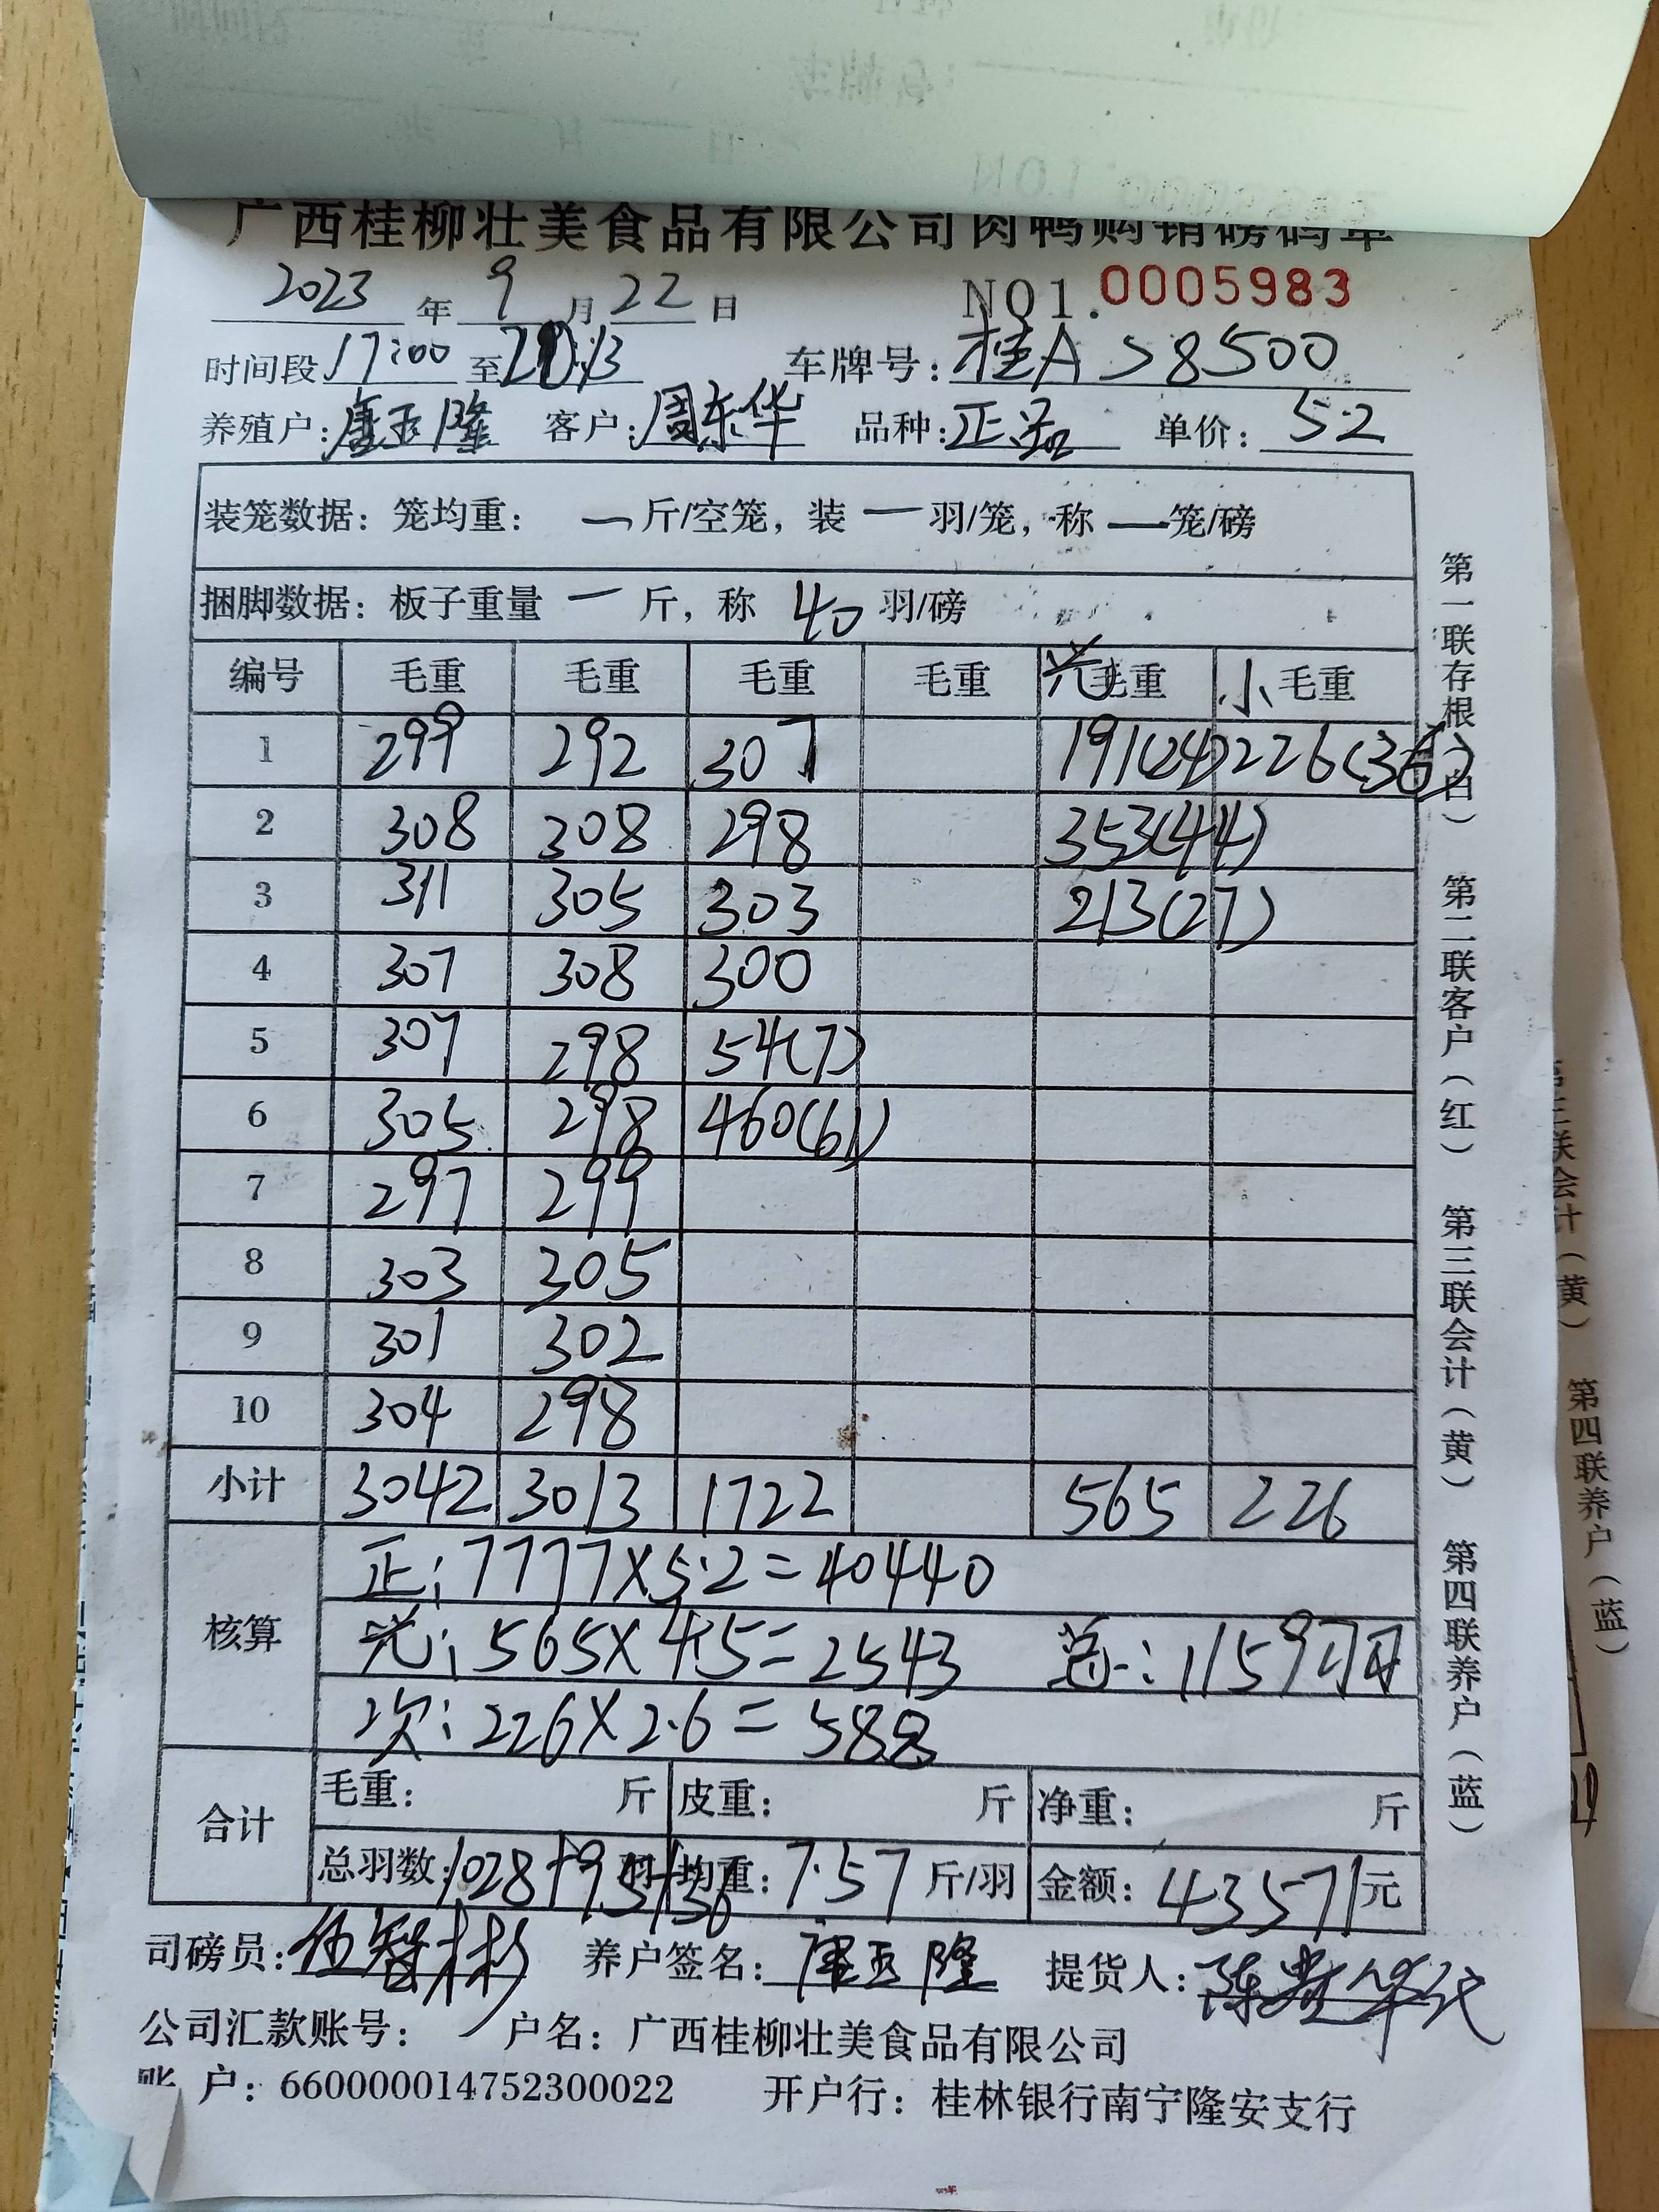 广西桂柳壮美食品有限公司肉鸭购销磅码单
2023年9月22日 NO1.0005983
时间段17:00至 车牌号:桂A 58500
养殖户:唐玉隆 客户:周东华 品种:正品 单价:5.2
装笼数据:笼均重: 一斤/空笼,装一羽/笼,称一笼/磅
捆脚数据:板子重量 一 斤,称 40 羽/磅
编号 毛重 毛重 毛重 毛重 光毛重 小毛重
1 299 292 307 191(24) 226(36)
2 308 308 298 353(44)
3 311 305 303 213(27)
4 307 308 300
5 307 298 54(7)
6 305 298 460(61)
7 297 299
8 303 305
9 301 302
10 304 298
小计 3042 3013 1722 565 226
核算
正:7777×5.2=40440
光:565×4.5=2543 总:1159羽
次:226×2.6=588
合计
毛重: 斤 皮重: 斤 净重: 斤
总羽数:1028+95+36羽 均重:7.57斤/羽 金额:43571元
司磅员:伍智彬 养户签名:唐玉隆 提货人:
公司汇款账号: 户名:广西桂柳壮美食品有限公司
账 户:660000014752300022 开户行:桂林银行南宁隆安支行
第一联存根(白) 第二联客户(红) 第三联会计(黄) 第四联养户(蓝)
第三联会计(黄) 第四联养户(蓝)